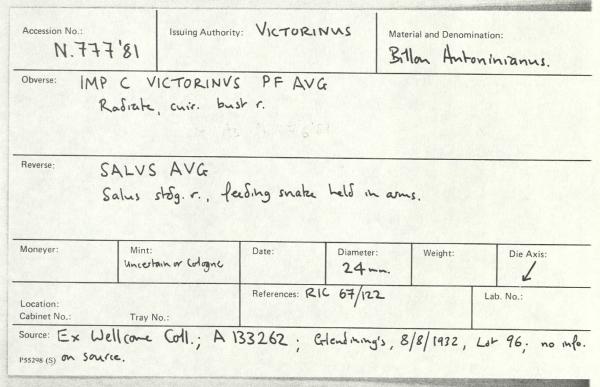 Accession No.: Issuing Authority: VICTORINUS Material and Denomination:
N.777'81 Billon Antoninianus.
Obverse: IMP C VICTORINVS PF AVG
Radiate, cuir. bust r.
Reverse: SALVS AVG
Salus stdg. r., feeding snake held in arms.
Moneyer: Mint: Date: Diameter: Weight: Die Axis:
Uncertain or Cologne 24mm. ↙
Location: References: RIC 67/122 Lab. No.:
Cabinet No.: Tray No.:
Source: Ex Wellcome Coll.; A 133262; Glendining's, 8/8/1932, Lot 96; no info.
P55298 (S) on source.